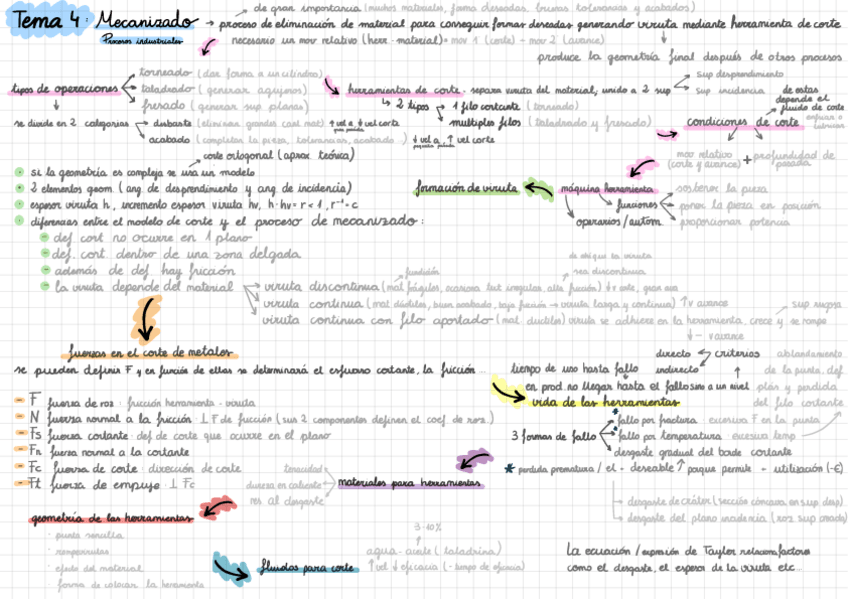 Tema 4: Mecanizado
Procesos industriales
de gran importancia (muchos materiales, forma deseada, buenas tolerancias y acabados)
proceso de eliminación de material para conseguir formas deseadas generando viruta mediante herramienta de corte
necesario un mov relativo (herr - material) = mov 1 (corte) - mov 2 (avance)
produce la geometría final después de otros procesos
tipos de operaciones
torneado (dar forma a un cilindro)
taladrado (generar agujeros)
fresado (generar sup. planas)
se divide en 2 categorías
desbaste (eliminar grandes cant mat) ↑ vel a, ↓ vel corte
acabado (completar la pieza, tolerancias, acabado) ↓ vel a, ↑ vel corte
herramientas de corte · separa viruta del material, unido a 2 sup
sup desprendimiento
sup incidencia
2 tipos
1 filo cortante (torneado)
multiples filos (taladrado y fresado)
de estas depende el fluido de corte
enfriar o lubricar
condiciones de corte
mov relativo (corte y avance) + profundidad de pasada
máquina herramienta
funciones
sostener la pieza
poner la pieza en posición
proporcionar potencia
operarios/autom.
formación de viruta
corte ortogonal (aprox teórica)
si la geometría es compleja se usa un modelo
2 elementos geom (ang de desprendimiento y ang. de incidencia)
espesor viruta h, incremento espesor viruta hv, h · hv = r < 1, r⁻¹ = c
diferencias entre el modelo de corte y el proceso de mecanizado:
def cort no ocurre en 1 plano
def. cort dentro de una zona delgada
además de def hay fricción
la viruta depende del material
de ahí que la viruta
fundición
sea discontinua
viruta discontinua (mat frágiles,
viruta continua (mat dúctiles, buen acabado, baja fricción → viruta larga y continua) ↑ v avance
sup rugosa
viruta continua con filo aportado (mat ductiles) viruta se adhiere en la herramienta, crece y se rompe
↓ - v avance
fuerzas en el corte de metales
se pueden definir F y en función de ellas se determinará el esfuerzo cortante, la fricción ...
F fuerza de roz · fricción herramienta - viruta
N fuerza normal a la fricción · ⊥ F de fricción (sus 2 componentes definen el coef de roz.)
Fs fuerza cortante · def de corte que ocurre en el plano
Fn fuerza normal a la cortante
Fc fuerza de corte · dirección de corte
Ft fuerza de empuje · ⊥ Fc
directo
criterios
indirecto
tiempo de uso hasta fallo
ablandamiento de la punta, def plan y perdida del filo cortante
en prod no llegar hasta el fallo sino a un nivel
vida de las herramientas
3 formas de fallo
fallo por fractura · excesiva F en la punta
fallo por temperatura · excesiva temp
desgaste gradual del borde cortante
* perdida prematura / el - deseable ↑ porque permite - utilización (-€)
desgaste de cráter (sección cóncava en sup desp)
desgaste del plano incidencia
materiales para herramientas
tenacidad
dureza en caliente
res. al desgaste
geometría de las herramientas
· punta sencilla
· rompevirutas
· efecto del material
· forma de colocar la herramienta
fluidos para corte
3-10%
agua - aceite (taladrina)
↑ vel ↓ eficacia (- tiempo de eficacia)
La ecuación / expresión de Taylor relaciona factores
como el desgaste, el espesor de la viruta etc...